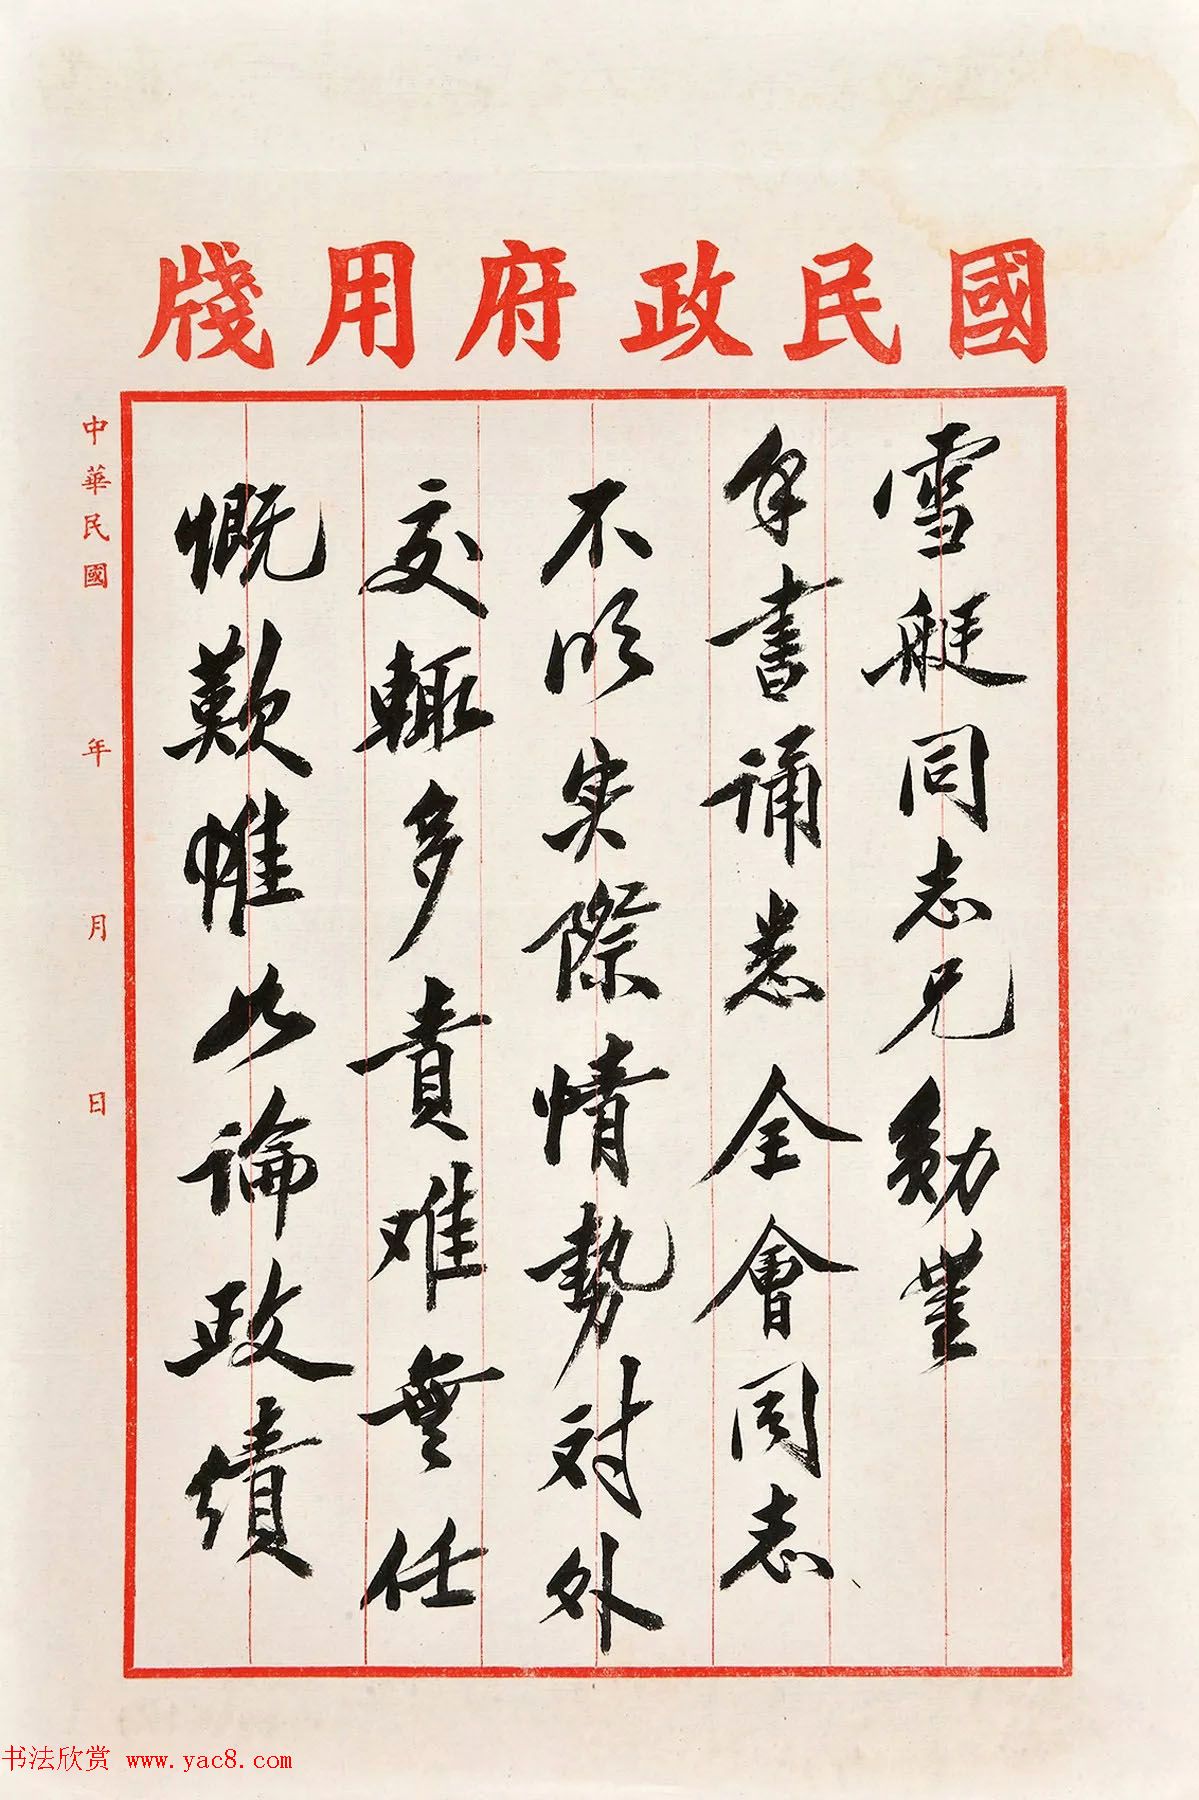 國民政府用牋
雪艇同志兄勛鑒
手書誦悉全會同志
不明實際情勢對外
交輒多責难無任
慨歎惟如論政績
中華民國 年 月 日
书法欣赏 www.yac8.com